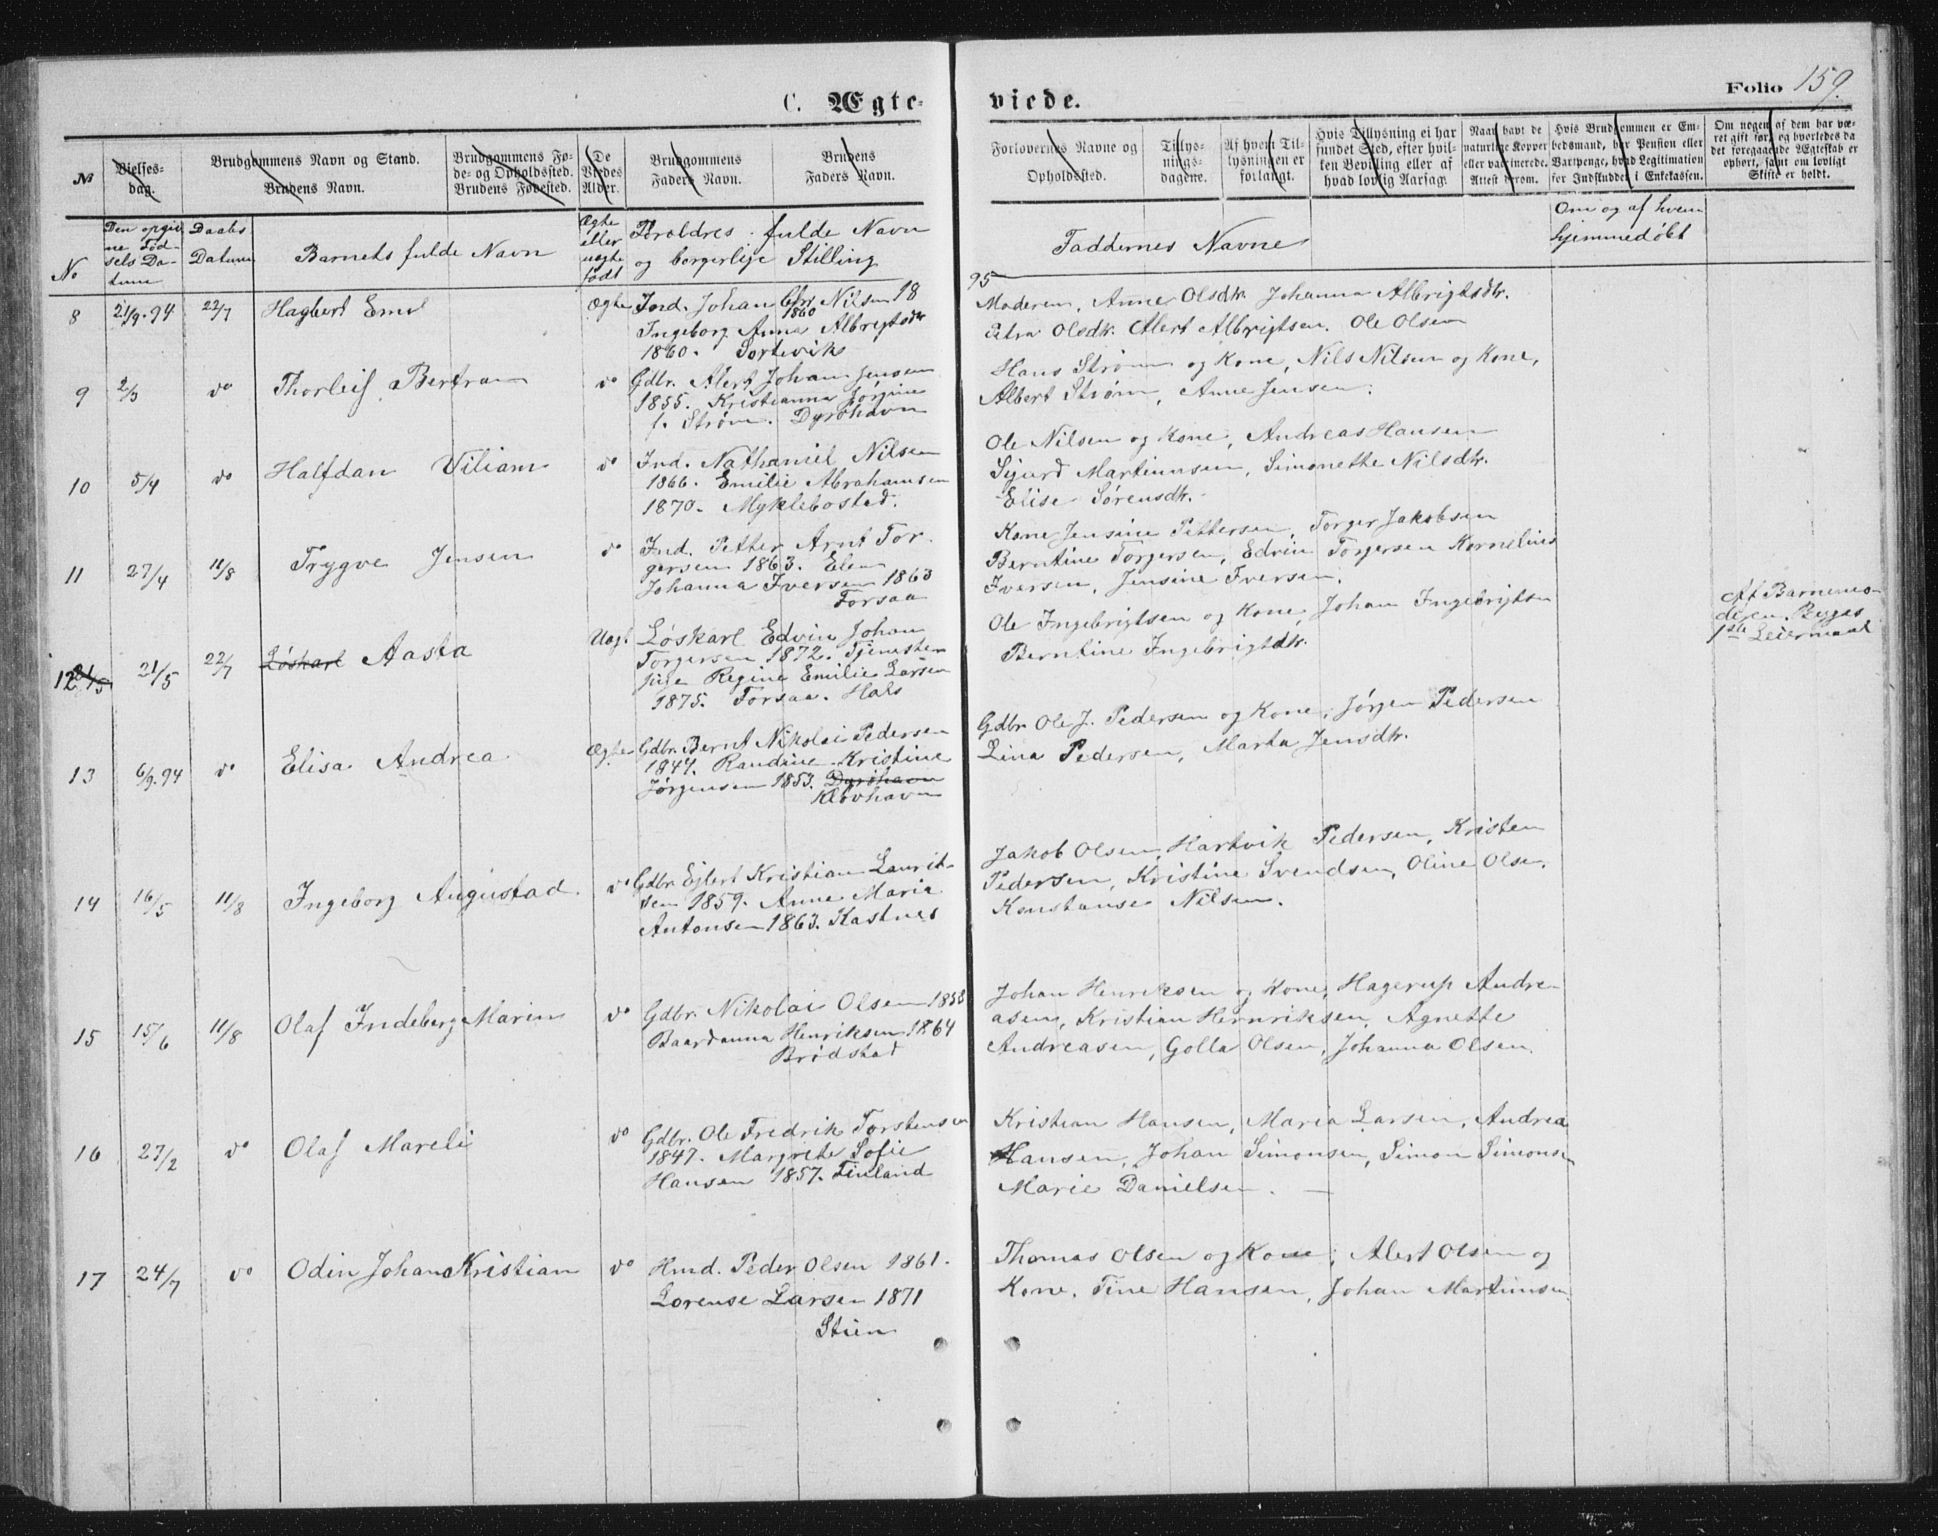 C. Ægte-
viede.
Folio 159
№
Vielses-
dag.
Brudgommens Navn og Stand.
Brudens Navn.
Brudgommens Fø-
de- og Opholdssted.
Brudens Fødested.
De
Viedes
Alder.
Brudgommens
Faders Navn.
Brudens
Faders Navn.
Forlovernes Navne og
Opholdssted.
Tillys-
nings-
dagene.
Af hvem Til-
lysningen er
forlangt.
Hvis Tillysning ei har
fundet Sted, efter hvil-
ken Bevilling eller af
hvad lovlig Aarsag.
Naar havt de
naturlige Kopper
eller vaccinerede.
Attest derom.
Hvis Brudgommen er Em-
bedsmand, har Pension eller
Vartpenge, hvad Legitimation
for Indskuddet i Enkekassen.
Om nogen af dem har væ-
ret gift før, og hvorledes da
det foregaaende Ægteskab er
ophørt, samt om lovligt
Skifte er holdt.
No
Den opgiv
ne Fød-
sels Da-
tum
Daabs
Datum
Barnets fulde Navn
Ægte
eller
uægte
født
Forældres fulde Navn
og borgerlige Stilling
Faddernes Navne
Om og af hvem
hjemmedøbt
95
8 21/9.94 22/7 Hagbert Emil Ægte Ind. Johan Chr. Nilsen 18
1860
Ingeborg Anna Albregtsdtr
1860. Sorteviks
Moderen, Anne Olsdtr. Johanna Albrigtsdtr.
Petra Olsdtr. Alert Albrigtsen. Ole Olsen
9 2/3 do Thorleif Bertram do Gdbr. Alert Johan Jensen
1855. Kristianna Jørgine
f. Strøm. Dyrøhavn
Hans Strøm og Kone, Nils Nilsen og Kone,
Albert Strøm, Anne Jensen.
10 5/4 do Halfdan Viliam do Ind. Nathaniel Nilsen
1866. Emilie Abrahamsen
1870. Myklebostad.
Ole Nilsen og Kone, Andreas Hansen
Sigurd Martinusen, Simonette Nilsdtr.
Elise Sørensdtr.
11 27/4 11/8 Trygve Jensen do Ind. Petter Arnt Tor-
gersen 1863. Elen
Johanna Iversen 1863
Forsaa
Kone Jensine Pettersen, Torger Jakobsen
Berntine Torgersen, Edvin Torgersen Kornelius
Iversen, Jensine Iversen.
12 21/5 21/5 22/7 Løskarl Aasta Uægt Løskarl Edvin Johan
Torgersen 1872. Tjeneste
pige Regine Emilie Larsen
1875. Forsaa. Hals
Ole Ingebrigtsen og Kone, Johan Ingebrigtsen
Berntine Ingebrigtsdtr.
Af Barnemo-
deren Beges
1ste Leiermaal
13 6/9.94 do Elisa Andrea Ægte Gdbr. Bernt Nikolai Pedersen
1847. Randine Kristine
Jørgensen 1853. Dyrøhavn
Kløvhavn
Gdbr. Ole J. Pedersen og Kone, Jørgen Pedersen
Lina Pedersen, Marta Jensdtr.
14 16/5 11/8 Ingeborg Augustad do Gdbr. Ejlert Kristian Laurit-
sen 1859. Anne Maria
Antonsen 1863. Kastnes
Jakob Olsen, Hartvik Pedersen, Kristen
Pedersen, Kristine Svendsen, Oline Olsen,
Konstanse Nilsen.
15 15/6 11/8 Olaf Indeberg Marin do Gdbr. Nikolai Olsen 1858
Baardanna Henriksen 1864
Brødstad
Johan Henriksen og Kone, Hagerup Andre-
asen, Kristian Henriksen, Agnette
Andreasen, Golla Olsen, Johanna Olsen.
16 27/2 do Olaf Mareli do Gdbr. Ole Fredrik Torstensen
1847. Margrete Sofie
Hansen 1857. Finland
Kristian Hansen, Maria Larsen, Andrea
Hansen, Johan Simonsen, Simon Simonsen
Marie Danielsen.
17 24/7 do Odin Johan Kristian do Hmd. Peder Olsen 1861.
Lorense Larsen 1871
Stien
Thomas Olsen og Kone; Alert Olsen og
Kone, Tine Hansen, Johan Martinusen